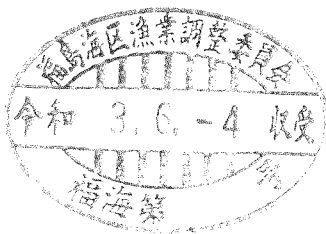 福島海区漁業調整委員会
令和 3. 6. -4 収受
福海第 号